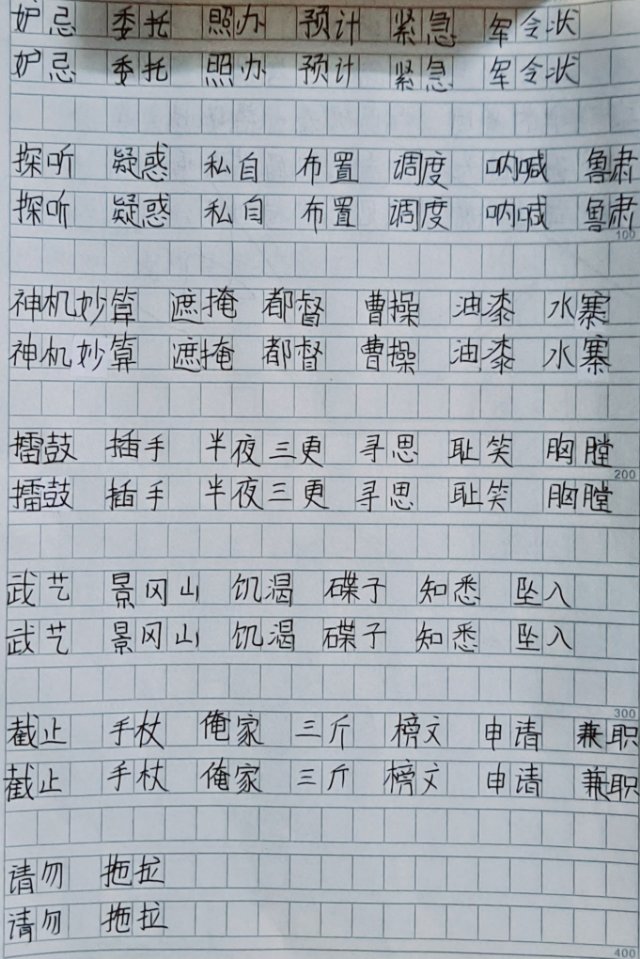 妒忌 委托 照办 预计 紧急 军令状
妒忌 委托 照办 预计 紧急 军令状
探听 疑惑 私自 布置 调度 呐喊 鲁肃
探听 疑惑 私自 布置 调度 呐喊 鲁肃
100
神机妙算 遮掩 都督 曹操 油漆 水寨
神机妙算 遮掩 都督 曹操 油漆 水寨
擂鼓 插手 半夜三更 寻思 耻笑 胸膛
200
擂鼓 插手 半夜三更 寻思 耻笑 胸膛
武艺 景冈山 饥渴 碟子 知悉 坠入
武艺 景冈山 饥渴 碟子 知悉 坠入
300
截止 手杖 俺家 三斤 榜文 申请 兼职
截止 手杖 俺家 三斤 榜文 申请 兼职
请勿 拖拉
请勿 拖拉
400